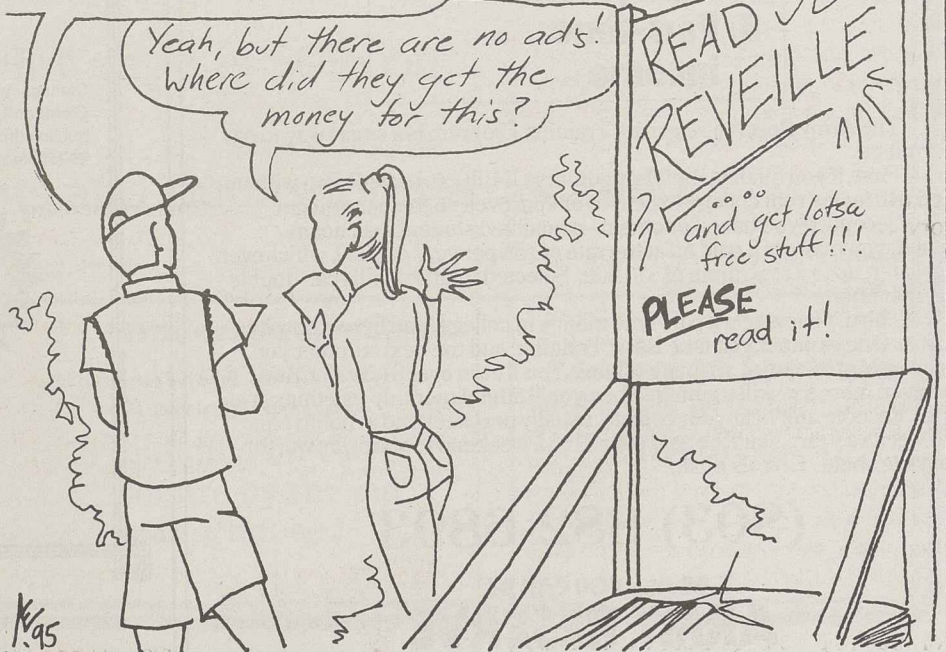 Yeah, but there are no ad's!
Where did they get the
money for this?
READ
REVEILLE
and get lotsa
free stuff!!!
PLEASE
read it!
'95